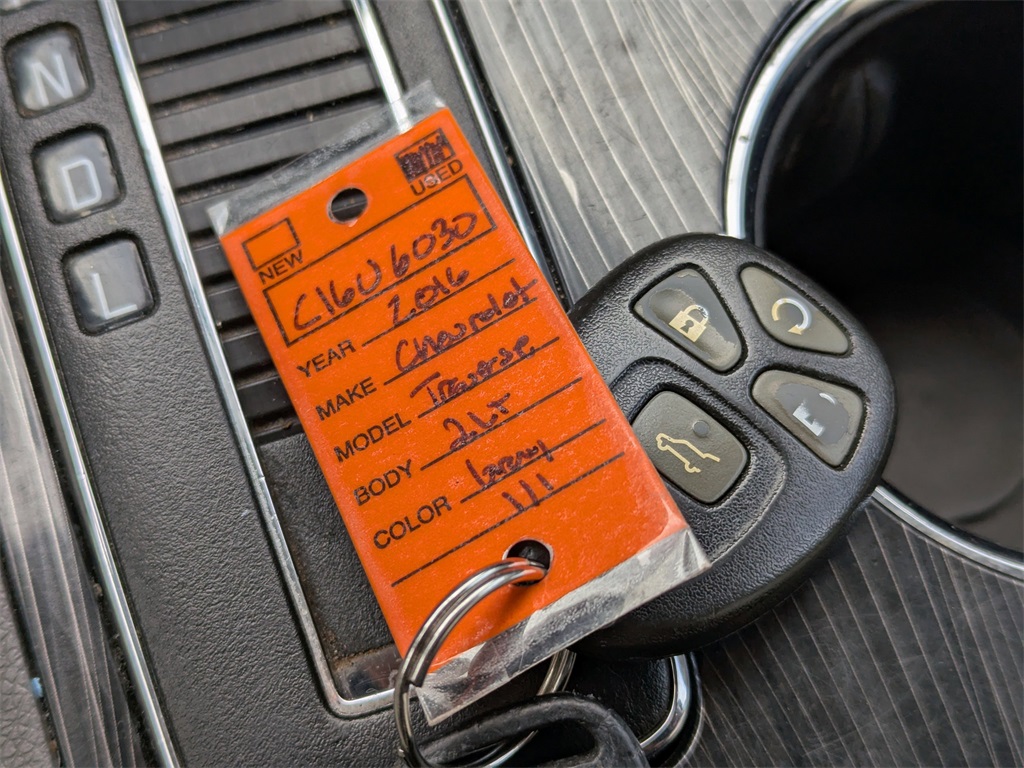 N
D
L
USED
NEW
C16U6030
YEAR 2016
MAKE Chevrolet
MODEL Traverse
BODY 2LT
COLOR
111